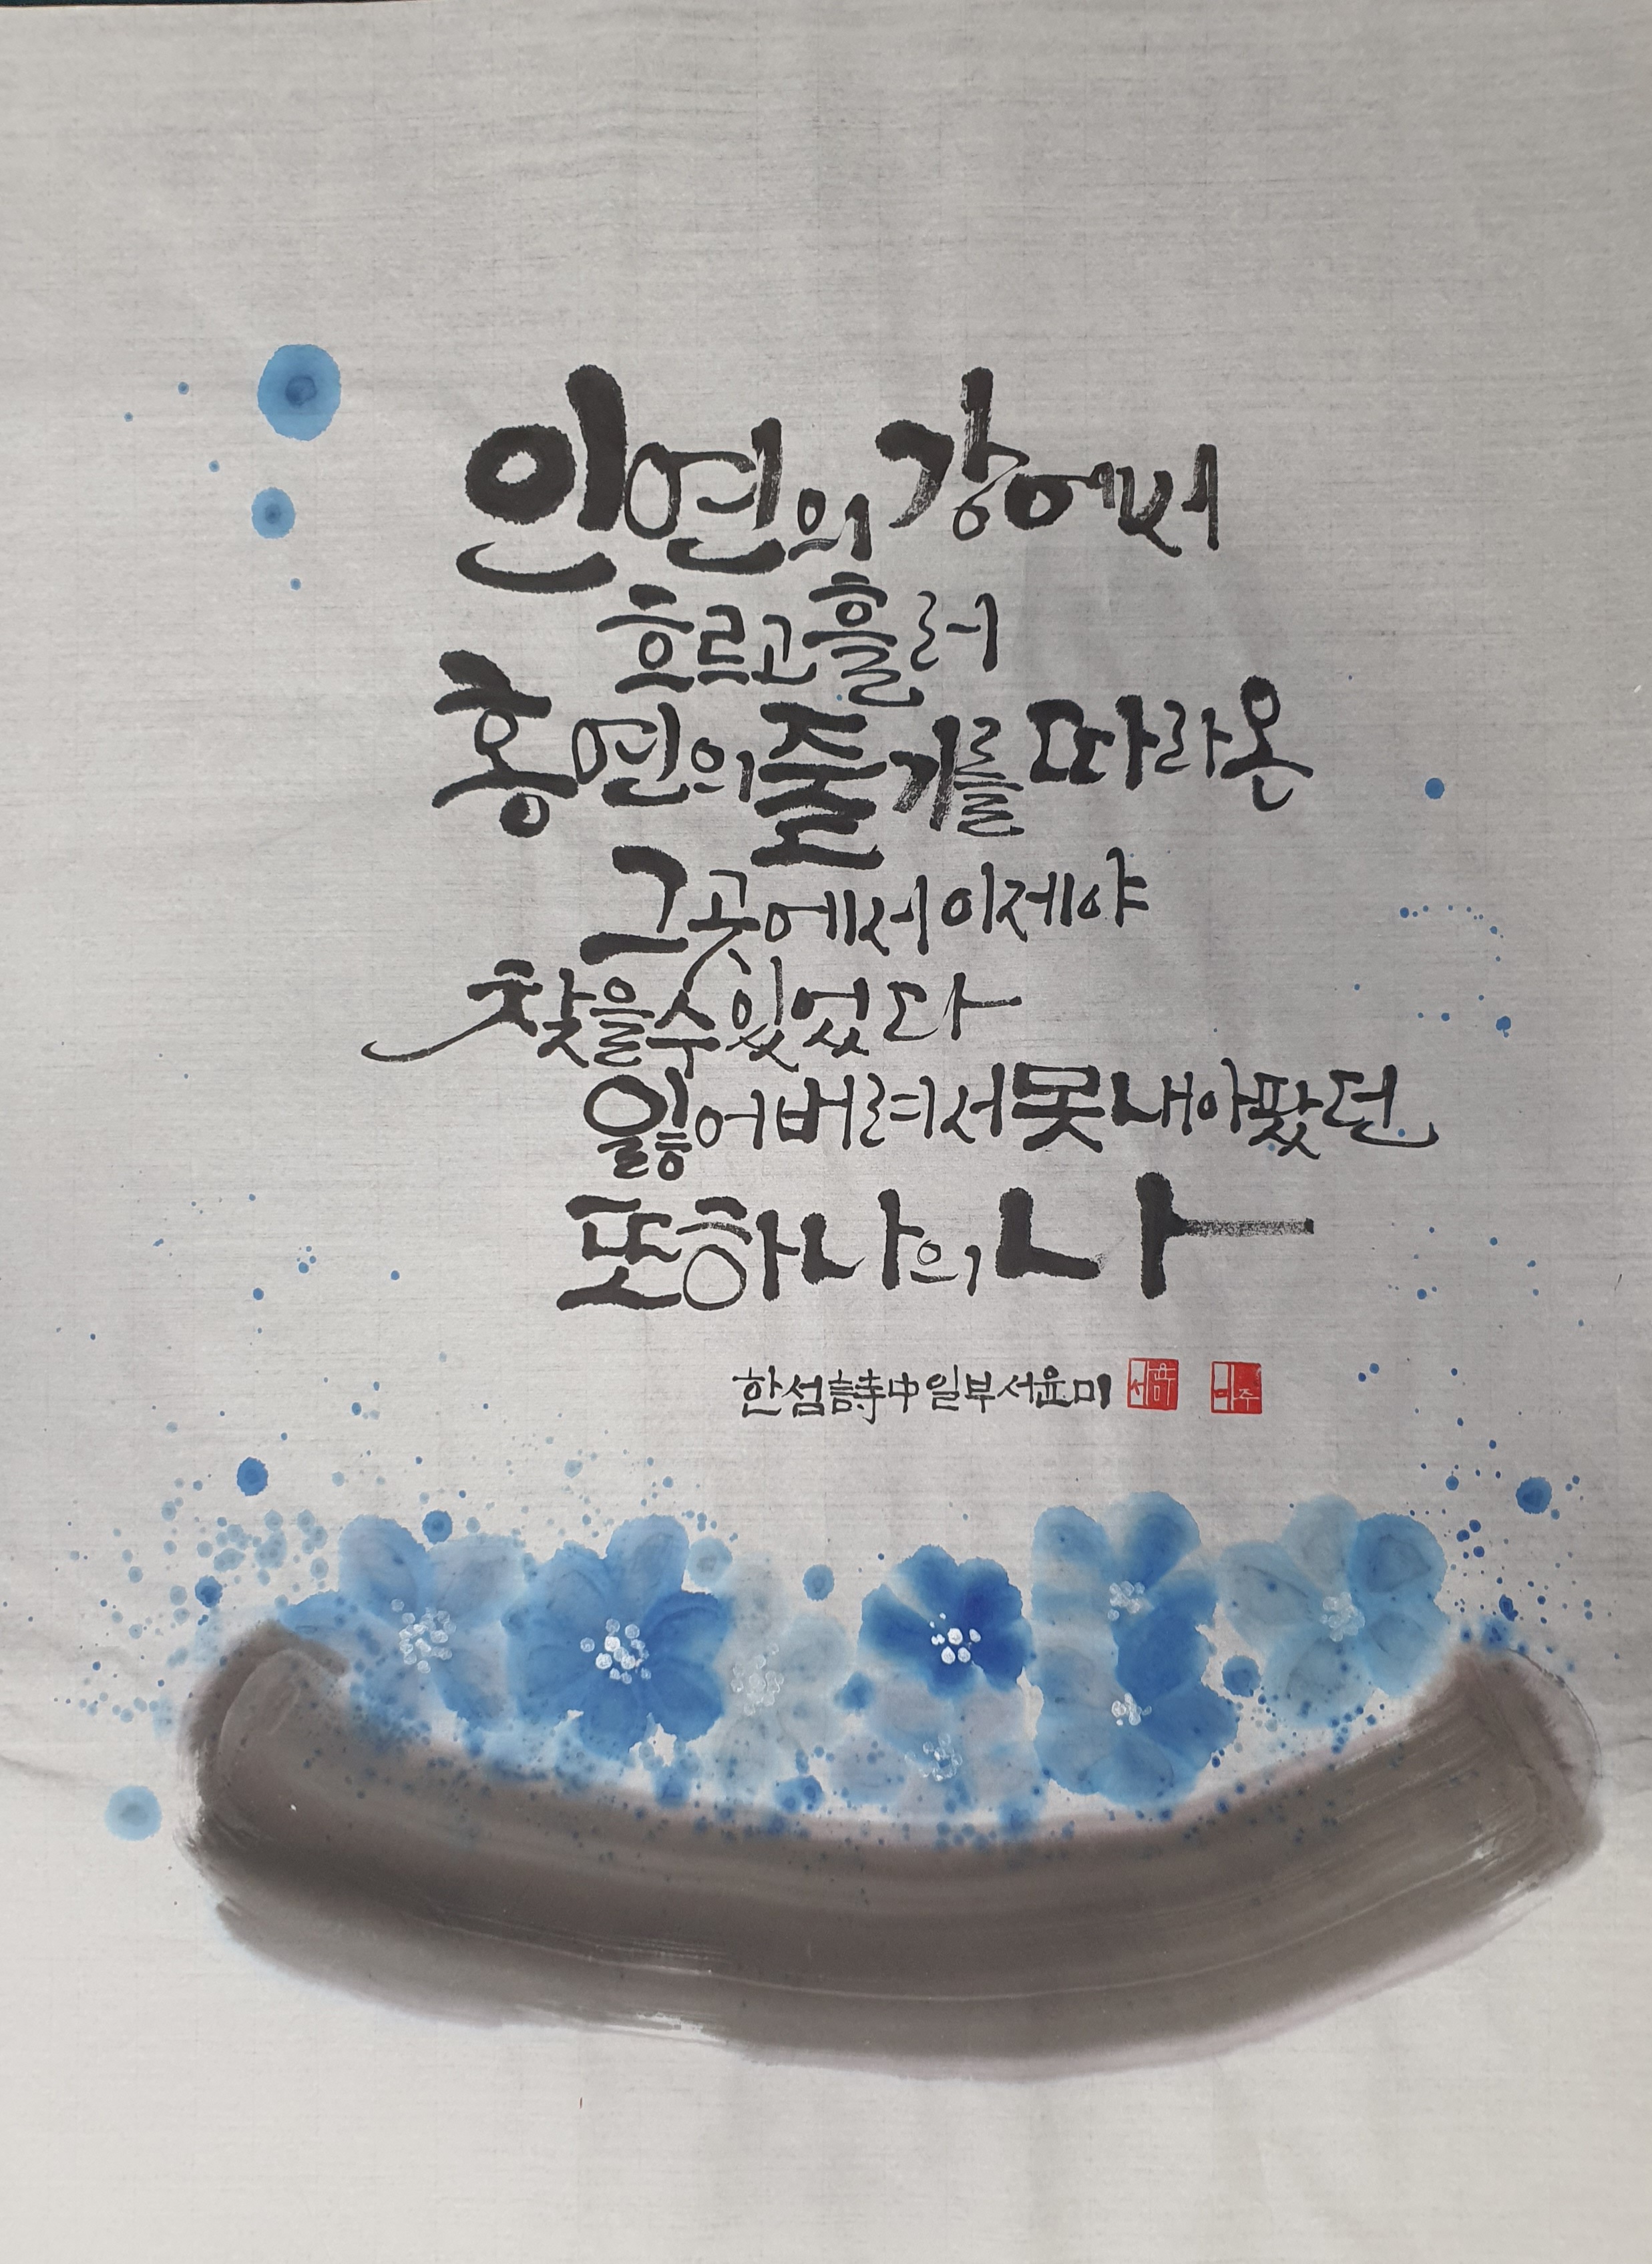 인연의 강에서
흐르고 흘러
홍연의 줄기를 따라온
그곳에서 이제야
찾을 수 있었다
잃어버려서 못내 아팠던
또 하나의 나
한섬 詩 中 일부 서윤미